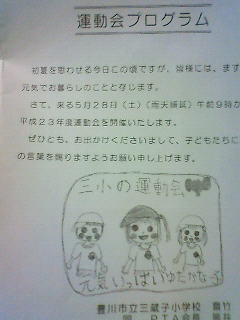 運動会プログラム
初夏を思わせる今日この頃ですが、皆様には、ます
元気でお暮らしのことと存じます。
さて、来る5月28日（土）（雨天順延）午前9時か
平成23年度運動会を開催いたします。
ぜひとも、お出かけくださいまして、子どもたちに
の言葉を賜りますようお願い申し上げます。
三小の運動会
元気いっぱいゆたかな子
豊川市立三蔵子小学校
PTA会長